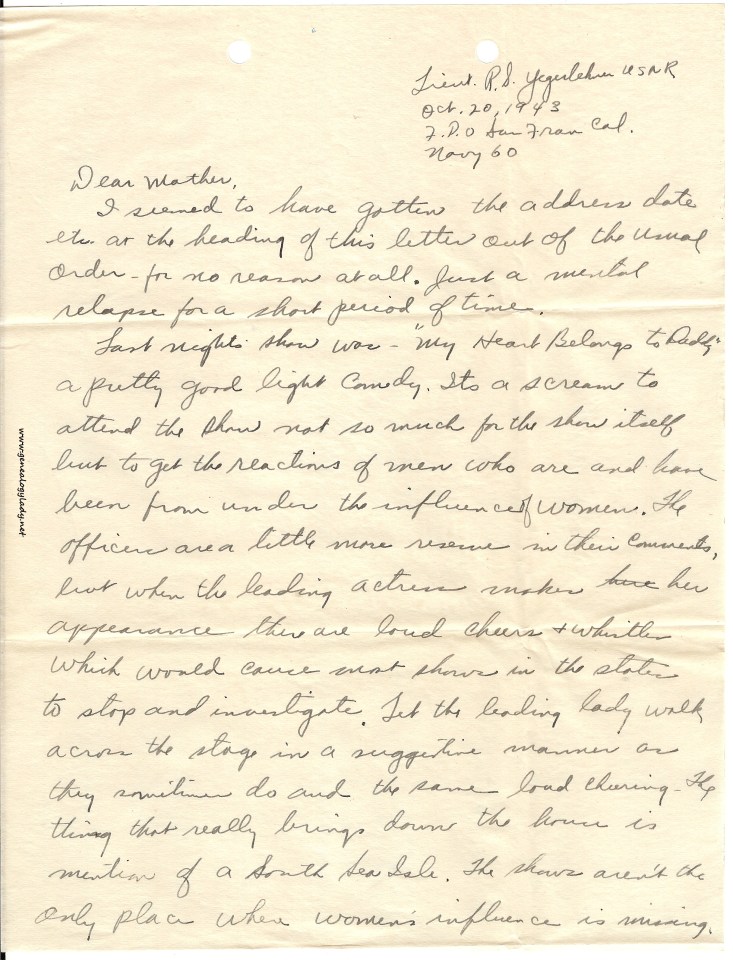 Lieut. R.S. Yegerlehner USNR
Oct. 20, 1943
F.P.O San Fran Cal.
Navy 60
Dear Mother,
I seemed to have gotten the address date
etc. at the heading of this letter out of the usual
order - for no reason at all. Just a mental
relapse for a short period of time.
Last nights show was - "My Heart Belongs to Daddy"
a pretty good light comedy. Its a scream to
attend the show not so much for the show itself
but to get the reactions of men who are and have
been from under the influence of women. The
officers are a little more reserve in their comments,
but when the leading actress makes her
appearance there are loud cheers + whistles
which would cause most shows in the states
to stop and investigate. Let the leading lady walk
across the stage in a suggestive manner as
they sometimes do and the same loud cheering - The
thing that really brings down the house is
mention of a South Sea Isle. The shows aren't the
only place where women's influence is missing.
www.genealogylady.net